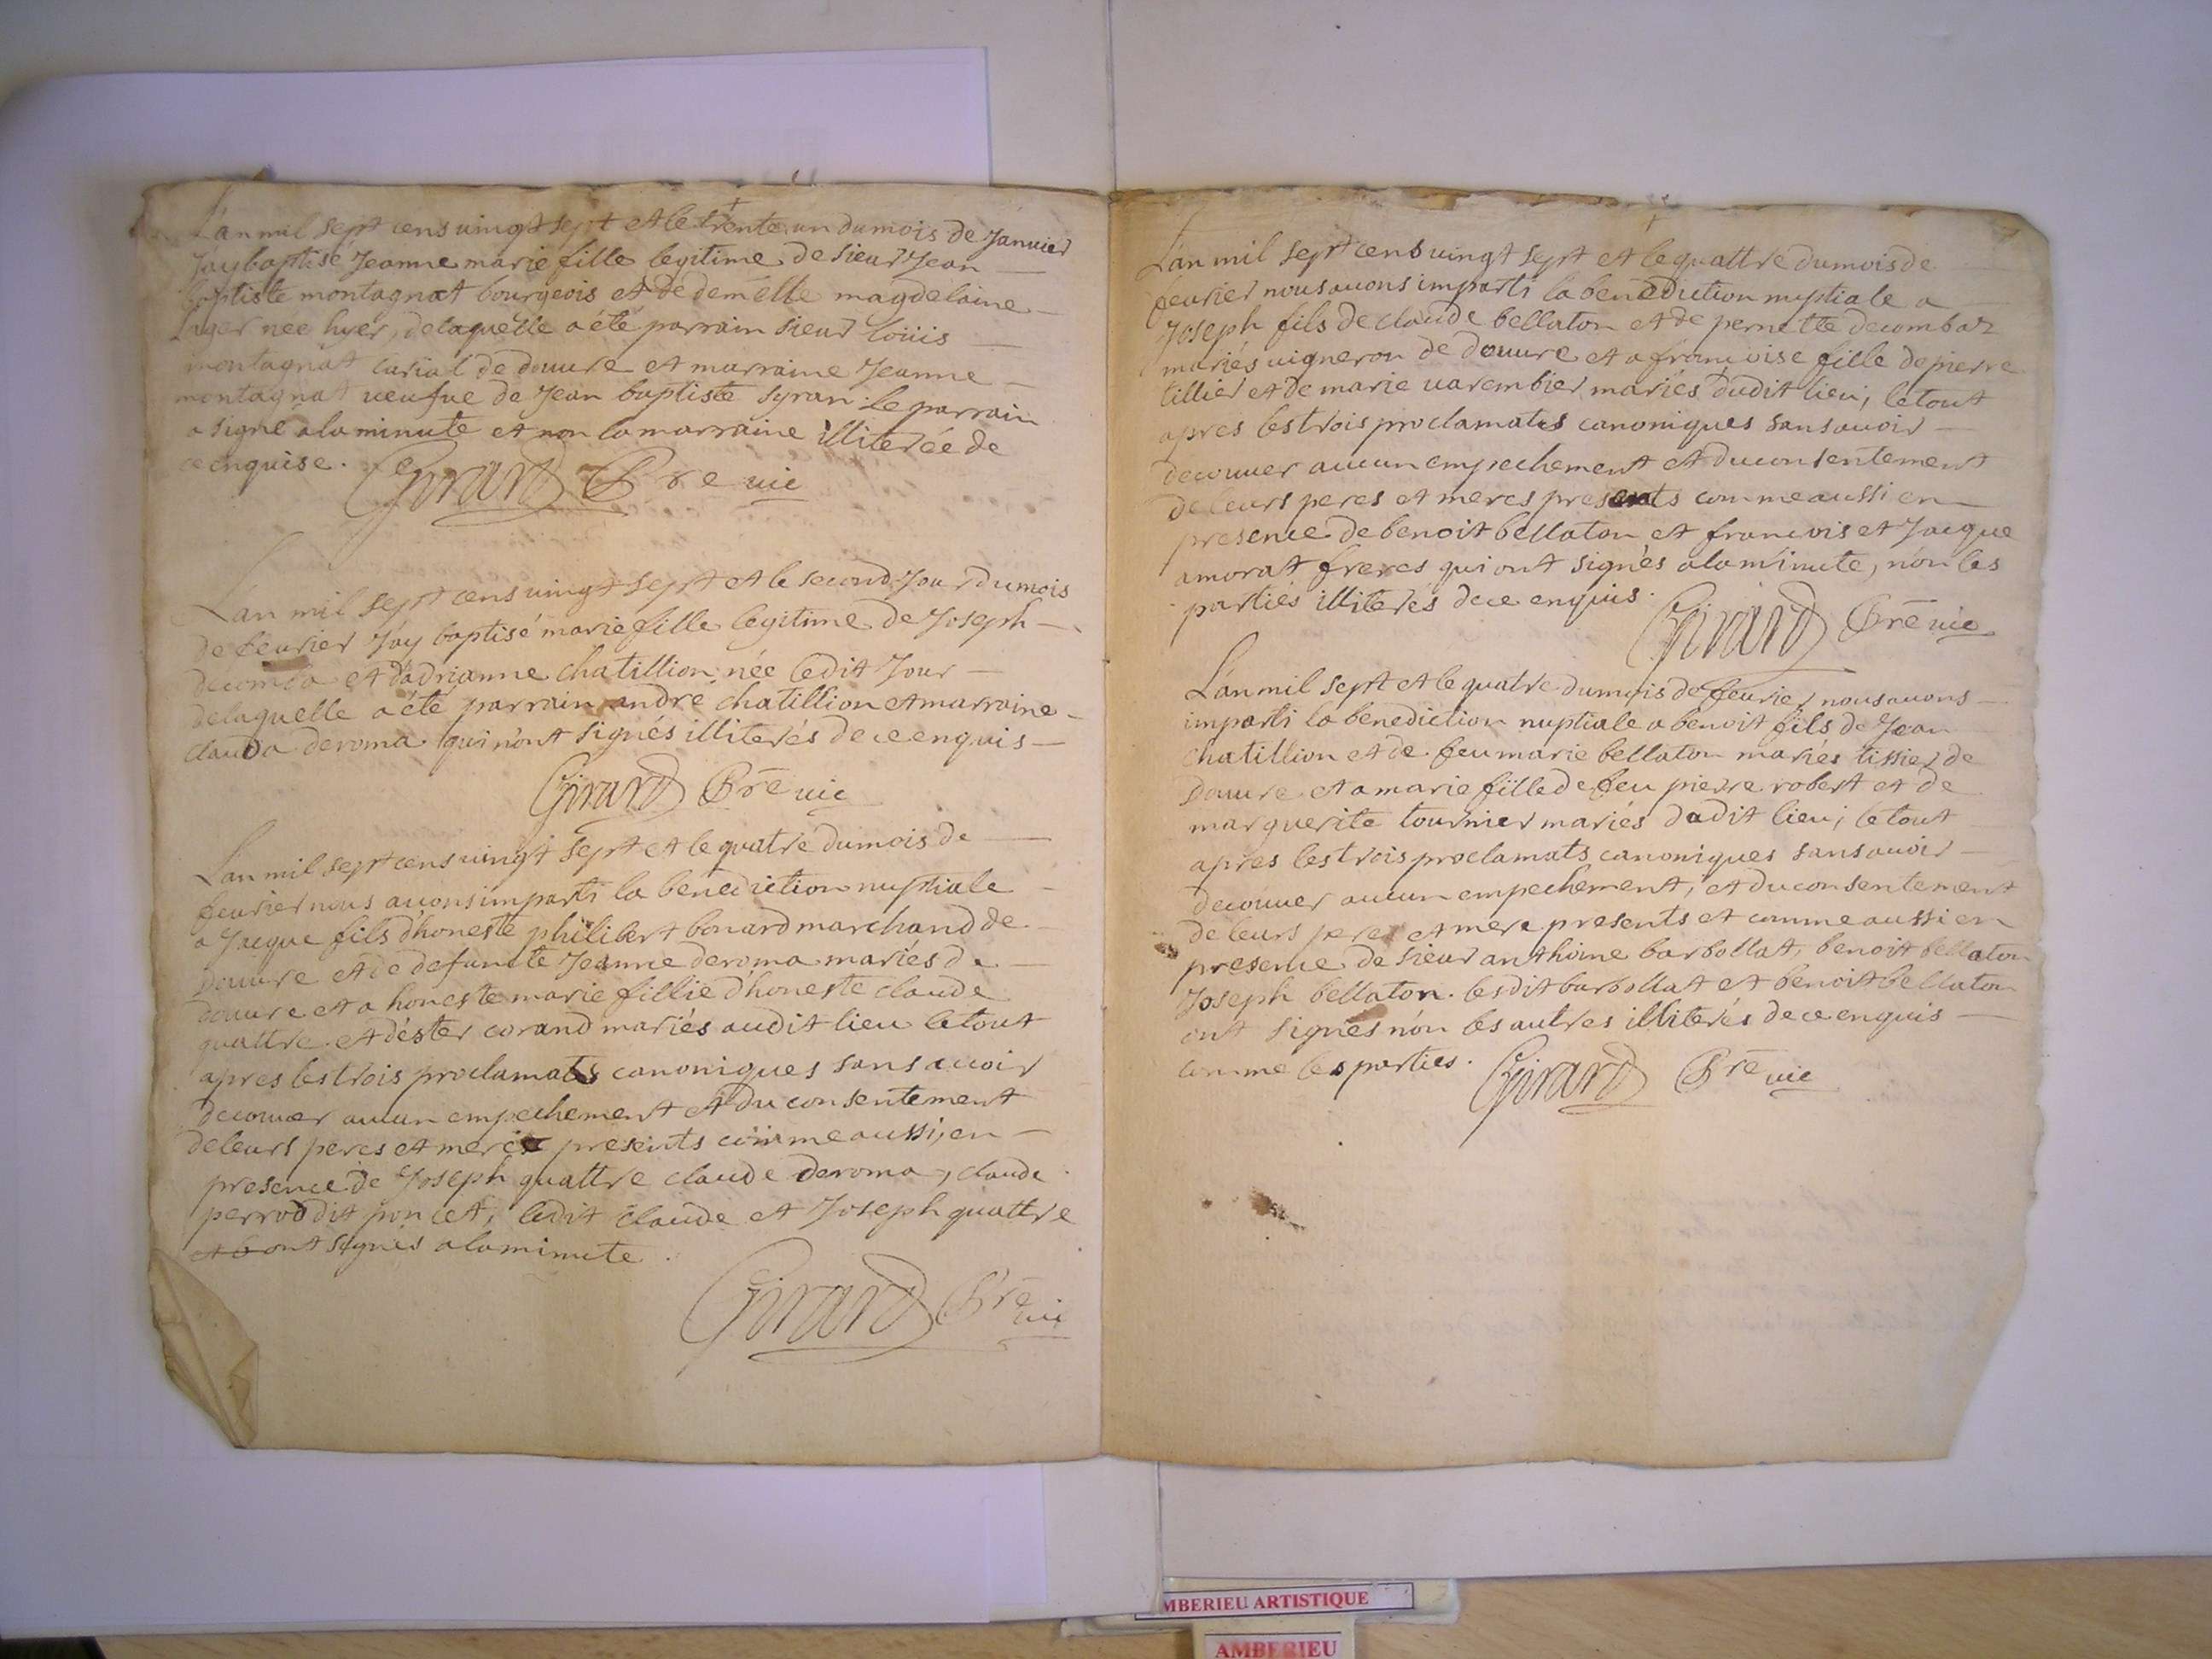 L'an mil sept cens vingt sept et le trente un du mois de Janvier
Jay baptisé Jeanne marie fille legitime de sieur Jean
baptiste montagnat bourgeois et de demelle magdelaine
Lager née hyer, delaquelle a été parrain sieur louis
montagnat curial de douvre et marraine Jeanne
montagnat veufve de Jean baptiste syran. le parrain
a signé a la minute et non la marraine illiterée de
ce enquise. Girard Pre vic
L'an mil sept cens vingt sept et le second Jour du mois
de fevrier Jay baptisé marie fille legitime de Joseph
decomba et d'adrianne chatillion, née ledit Jour
delaquelle a été parrain andré chatillion et marraine
clauda deroma qui n'ont signés illiterés de ce enquis
Girard Pre vic
L'an mil sept cens vingt sept et le quatre du mois de
fevrier nous avons imparti la benediction nuptiale
a Jacque fils d'honeste philibert bonard marchand de
Douvre et de defuncte Jeanne deroma mariés de
douvre et a honeste marie fillie d'honeste claude
quattre et d'ester corand mariés audit lieu le tout
apres les trois proclamats canoniques sans avoir
decouver aucun empechement et du consentement
de leurs peres et mere presents comme aussi, en
presence de Joseph quattre claude deroma, claude
perrod dit poncet, ledit claude et Joseph quattre
ont signés a la minute
Girard Pre vic
L'an mil sept cens vingt sept et le quattre du mois de
fevrier nous avons imparti la benediction nuptiale a
Joseph fils de claude bellaton et de pernette decombaz
mariés vigneron de douvre et a françoise fille de pierre
tillier et de marie varembier mariés dudit lieu, le tout
apres les trois proclamats canoniques sans avoir
decouver aucun empechement et du consentement
de leurs peres et meres presents comme aussi en
presence de benoit bellaton et francois et Jacque
amorat freres qui ont signés a la minute, non les
parties illiterés de ce enquis. Girard Pre vic
L'an mil sept et le quatre du mois de fevrier nous avons
imparti la benediction nuptiale a benoit fils de Jean
chatillion et de feu marie bellaton mariés tissier de
Douvre et a marie fille de feu pierre robert et de
marguerite tournier mariés dudit lieu, le tout
apres les trois proclamats canoniques sans avoir
decouver aucun empechement, et du consentement
de leurs pere et mere presents et comme aussi en
presence de sieur anthoine barbollat, benoit bellaton
Joseph bellaton. lesdit barbollat et benoit bellaton
ont signés non les autres illiterés de ce enquis
comme les parties. Girard Pre vic
MBERIEU ARTISTIQUE
AMBERIEU